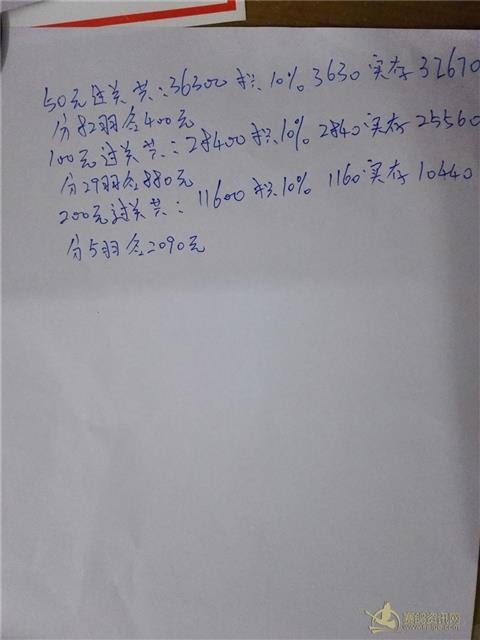 50元过关共:36300 扣10% 3630 实存32670
分82羽各400元
100元过关共:28400扣10% 2840 实存25560
分29羽各880元
200元过关共:11600扣10% 1160实存10440
分5羽各2090元
赛鸽资讯网